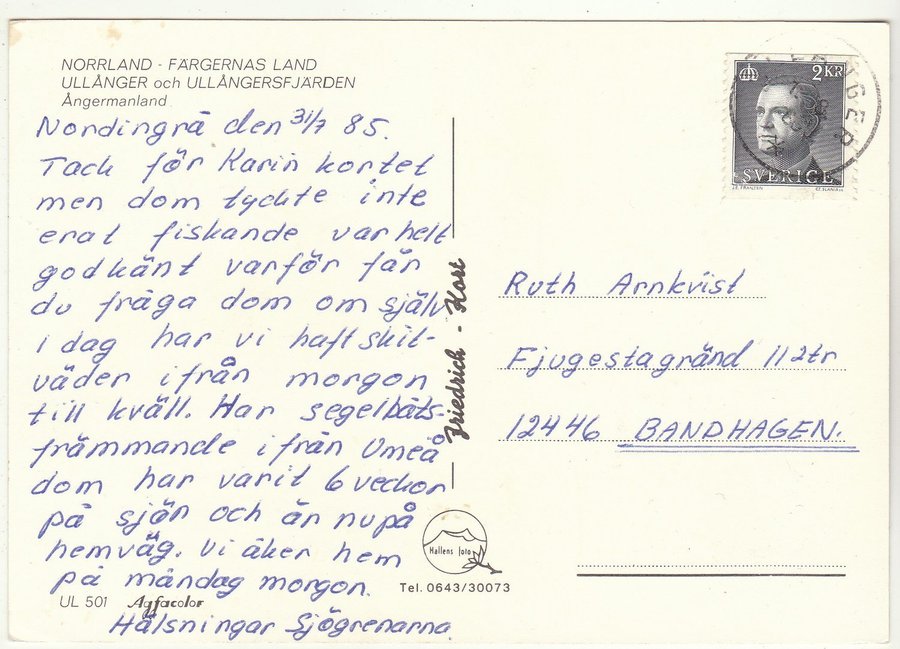 NORRLAND - FÄRGERNAS LAND
ULLÅNGER och ULLÅNGERSFJÄRDEN
Ångermanland
Nordingrå den 31/7 85.
Tack för Karin kortet
men dom tyckte inte
erat fiskande var helt
godkänt varför får
du fråga dom om själv
I dag har vi haft skit-
väder ifrån morgon
till kväll. Har segelbåts-
främmande ifrån Umeå
dom har varit 6 veckor
på sjön och är nu på
hemväg. Vi åker hem
på måndag morgon.
Hälsningar Sjögrenarna
UL 501 Agfacolor
Friedrich - Kort
Hallens foto
Tel. 0643/30073
2 KR
SVERIGE
Ruth Arnkvist
Fjugestagränd 11 2tr
12446 BANDHAGEN.